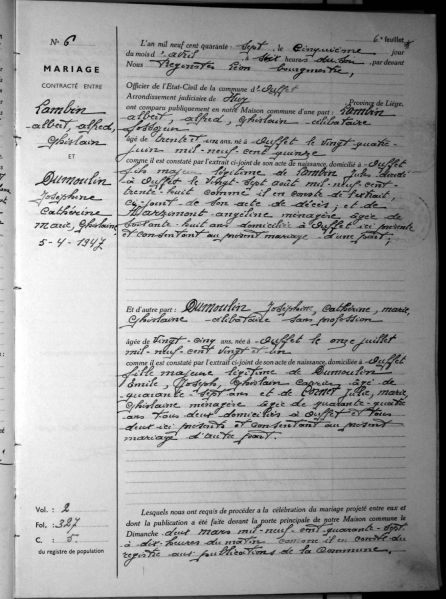 6e feuillet
N° 6
MARIAGE
CONTRACTÉ ENTRE
Lambin
albert, alfred,
Ghislain
ET
Dumoulin
Joséphine
Catherine
Marie, Ghislaine
5-4-1947
L'an mil neuf cent quarante-sept, le cinquième jour
du mois d'avril à heures du soir, par devant
Nous Léon bourgmestre,
Officier de l'État-Civil de la commune d'Ouffet
Arrondissement judiciaire de Huy Province de Liège.
ont comparu publiquement en notre Maison commune d'une part : Lambin
albert, alfred, Ghislain célibataire
âgé de trente et un ans, né à Ouffet le vingt quatre
juin mil-neuf-cent quinze
comme il est constaté par l'extrait ci-joint de son acte de naissance, domicilié à Ouffet
fils majeur légitime de Lambin Jules décédé
à Ouffet le vingt-sept août mil-neuf-cent
trente-huit comme il conste de l'extrait,
ci-joint de son acte de décès, et de
Marzimont angéline ménagère âgée de
soixante-huit ans domiciliée à Ouffet ici présente
et consentant au présent mariage d'une part;
Et d'autre part : Dumoulin Joséphine, Catherine, Marie,
Ghislaine célibataire sans profession
âgée de vingt-cinq ans, née à Ouffet le onze juillet
mil-neuf-cent vingt et un
comme il est constaté par l'extrait ci-joint de son acte de naissance, domiciliée à Ouffet
fille majeure légitime de Dumoulin
Emile, Joseph, Ghislain âgé de
quarante-sept ans et de Cornet Julie, Marie,
Ghislaine ménagère âgée de quarante-quatre
ans tous deux domiciliés à Ouffet et tous
deux ici présents et consentant au présent
mariage d'autre part.
Vol. : 2
Fol. : 327
C. : 5
du registre de population
Lesquels nous ont requis de procéder à la célébration du mariage projeté entre eux et
dont la publication a été faite devant la porte principale de notre Maison commune le
Dimanche deux mars mil-neuf-cent quarante-sept
à dix-heures du matin comme il en conste du
registre aux publications de la Commune,